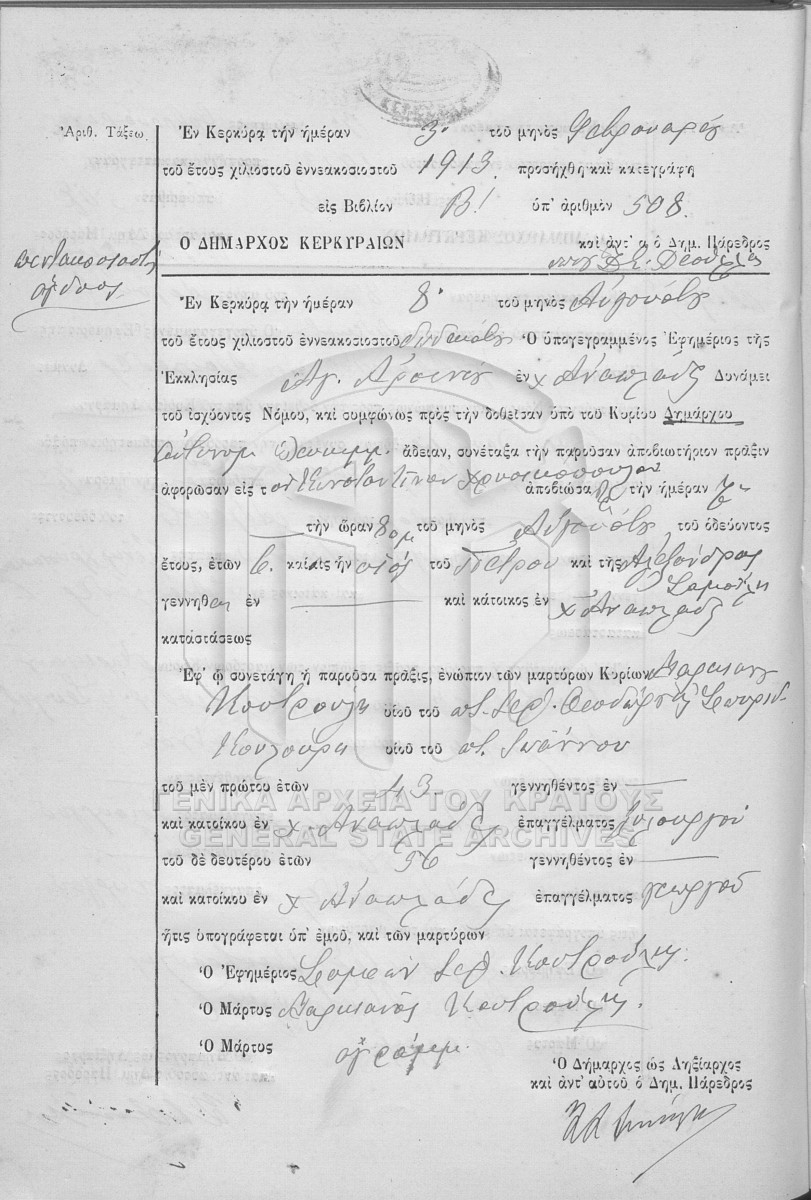 ΚΕΡΚΥΡΑΣ
Ἀριθ. Τάξεω
Ἐν Κερκύρᾳ τὴν ἡμέραν 3 τοῦ μηνὸς Φεβρουαρίου
τοῦ ἔτους χιλιοστοῦ ἐννεακοσιοστοῦ 1913 προσήχθη καὶ κατεγράφη
εἰς Βιβλίον Β' ὑπ' ἀριθμὸν 508.
Ο ΔΗΜΑΡΧΟΣ ΚΕΡΚΥΡΑΙΩΝ καὶ ἀντ' α ὁ Δημ. Πάρεδρος
πεντακοσιοστὴ
ὄγδοος
Ἐν Κερκύρᾳ τὴν ἡμέραν 8 τοῦ μηνὸς Αὐγούστου
τοῦ ἔτους χιλιοστοῦ ἐννεακοσιοστοῦ δωδεκάτου Ὁ ὑπογεγραμμένος Ἐφημέριος τῆς
Ἐκκλησίας Ἁγ. ἐν χ Ἀναπλάδες Δυνάμει
τοῦ ἰσχύοντος Νόμου, καὶ συμφώνως πρὸς τὴν δοθεῖσαν ὑπὸ τοῦ Κυρίου Δημάρχου
ἄδειαν, συνέταξα τὴν παροῦσαν ἀποβιωτήριον πρᾶξιν
ἀφορῶσαν εἰς τὸν Κωνσταντῖνον Χρυσικόπουλον ἀποβιώσα τὴν ἡμέραν 7
τὴν ὥραν 8 πμ τοῦ μηνὸς Αὐγούστου τοῦ ὁδεύοντος
ἔτους, ἐτῶν 6. καὶ ἦν υἱὸς τοῦ Πέτρου καὶ τῆς Ἀλεξάνδρας
γεννηθεὶς ἐν καὶ κάτοικος ἐν χ Ἀναπλάδες
καταστάσεως
Ἐφ' ᾧ συνετάγη ἡ παροῦσα πρᾶξις, ἐνώπιον τῶν μαρτύρων Κυρίων
Κουτρούλη υἱοῦ τοῦ Θεοδώρου Σπυρίδ
Κουλούρη υἱοῦ τοῦ π. Ἰωάννου
τοῦ μὲν πρώτου ἐτῶν 43 γεννηθέντος ἐν
ΓΕΝΙΚΑ ΑΡΧΕΙΑ ΤΟΥ ΚΡΑΤΟΥΣ
καὶ κατοίκου ἐν χ. Ἀναπλάδες ἐπαγγέλματος
GENERAL STATE ARCHIVES
τοῦ δὲ δευτέρου ἐτῶν 56 γεννηθέντος ἐν
καὶ κατοίκου ἐν χ Ἀναπλάδες ἐπαγγέλματος γεωργοῦ
ἥτις ὑπογράφεται ὑπ' ἐμοῦ, καὶ τῶν μαρτύρων
Ὁ Ἐφημέριος Κουτρούλης
Ὁ Μάρτυς Κουτρούλης.
Ὁ Μάρτυς ἀγράμμ.
Ὁ Δήμαρχος ὡς Ληξίαρχος
καὶ ἀντ' αὐτοῦ ὁ Δημ. Πάρεδρος